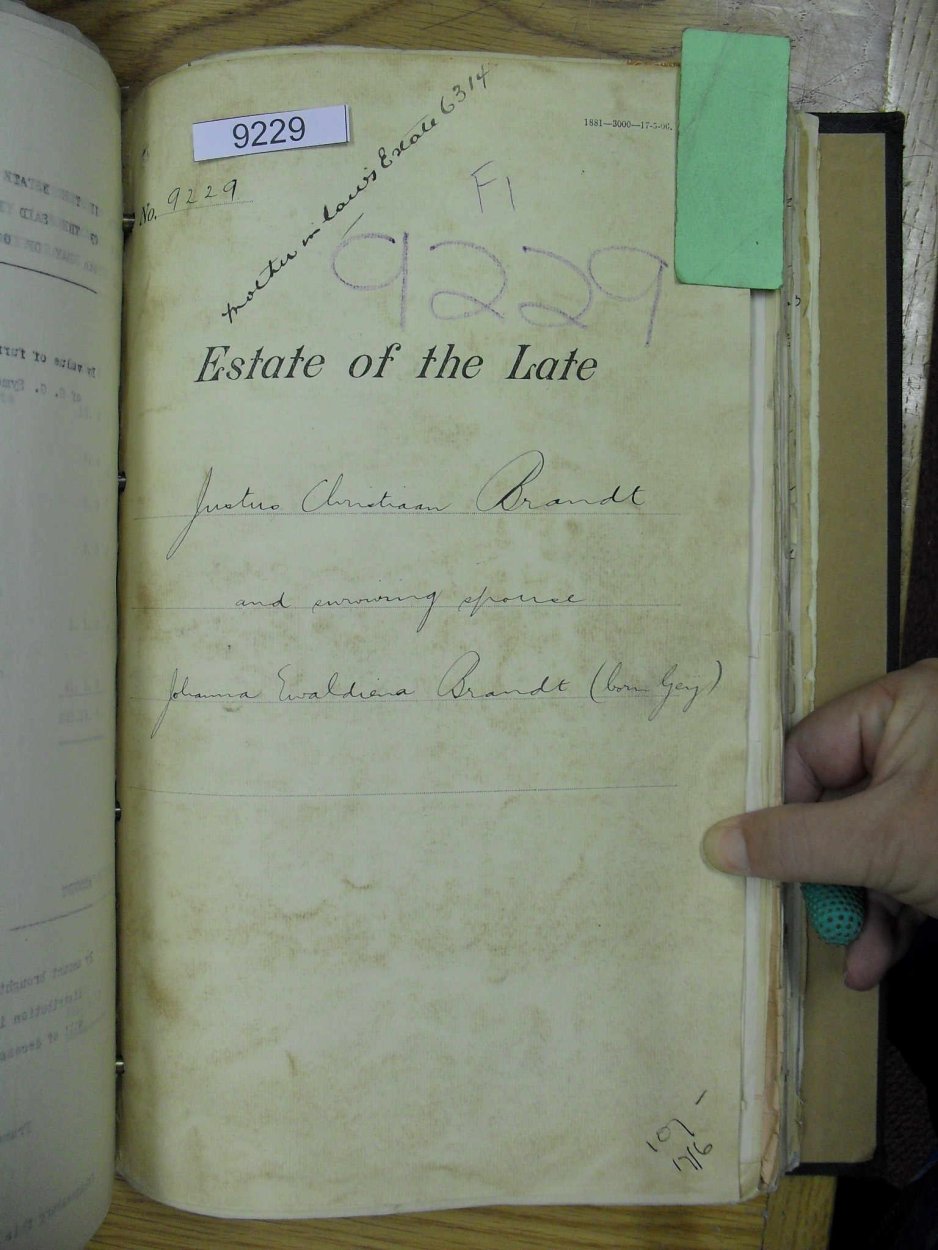 9229
mother in law's Estate 6314
1881—3000—17-5-06.
No. 9229
F1
9229
Estate of the Late
Justus Christiaan Brandt
and surviving spouse
Johanna Ewaldiena Brandt (born Geij)
107 -